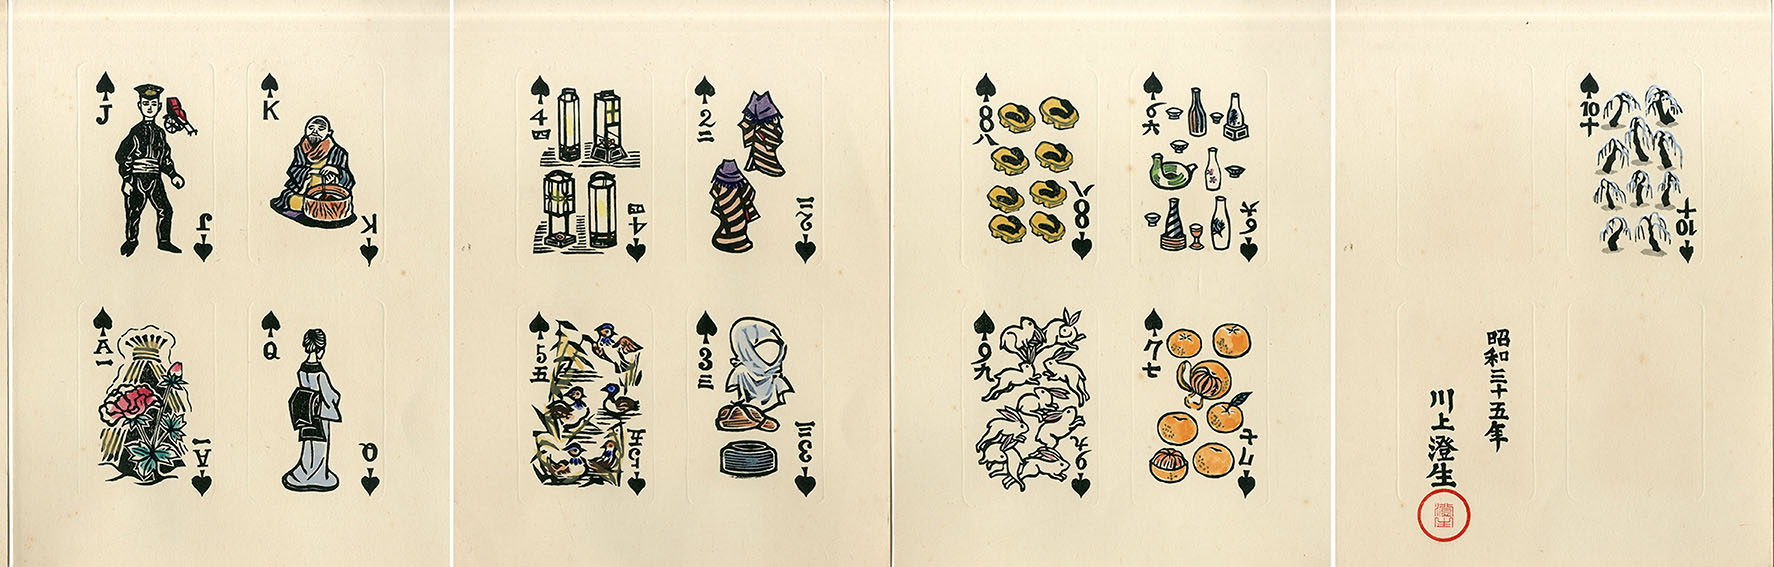 J
J
K
K
A
一
A
一
Q
Q
4
四
4
四
2
二
2
二
5
五
5
五
3
三
3
三
8
八
8
八
6
六
6
六
9
九
9
九
7
七
7
七
10
十
10
十
昭和三十五年
川上澄生